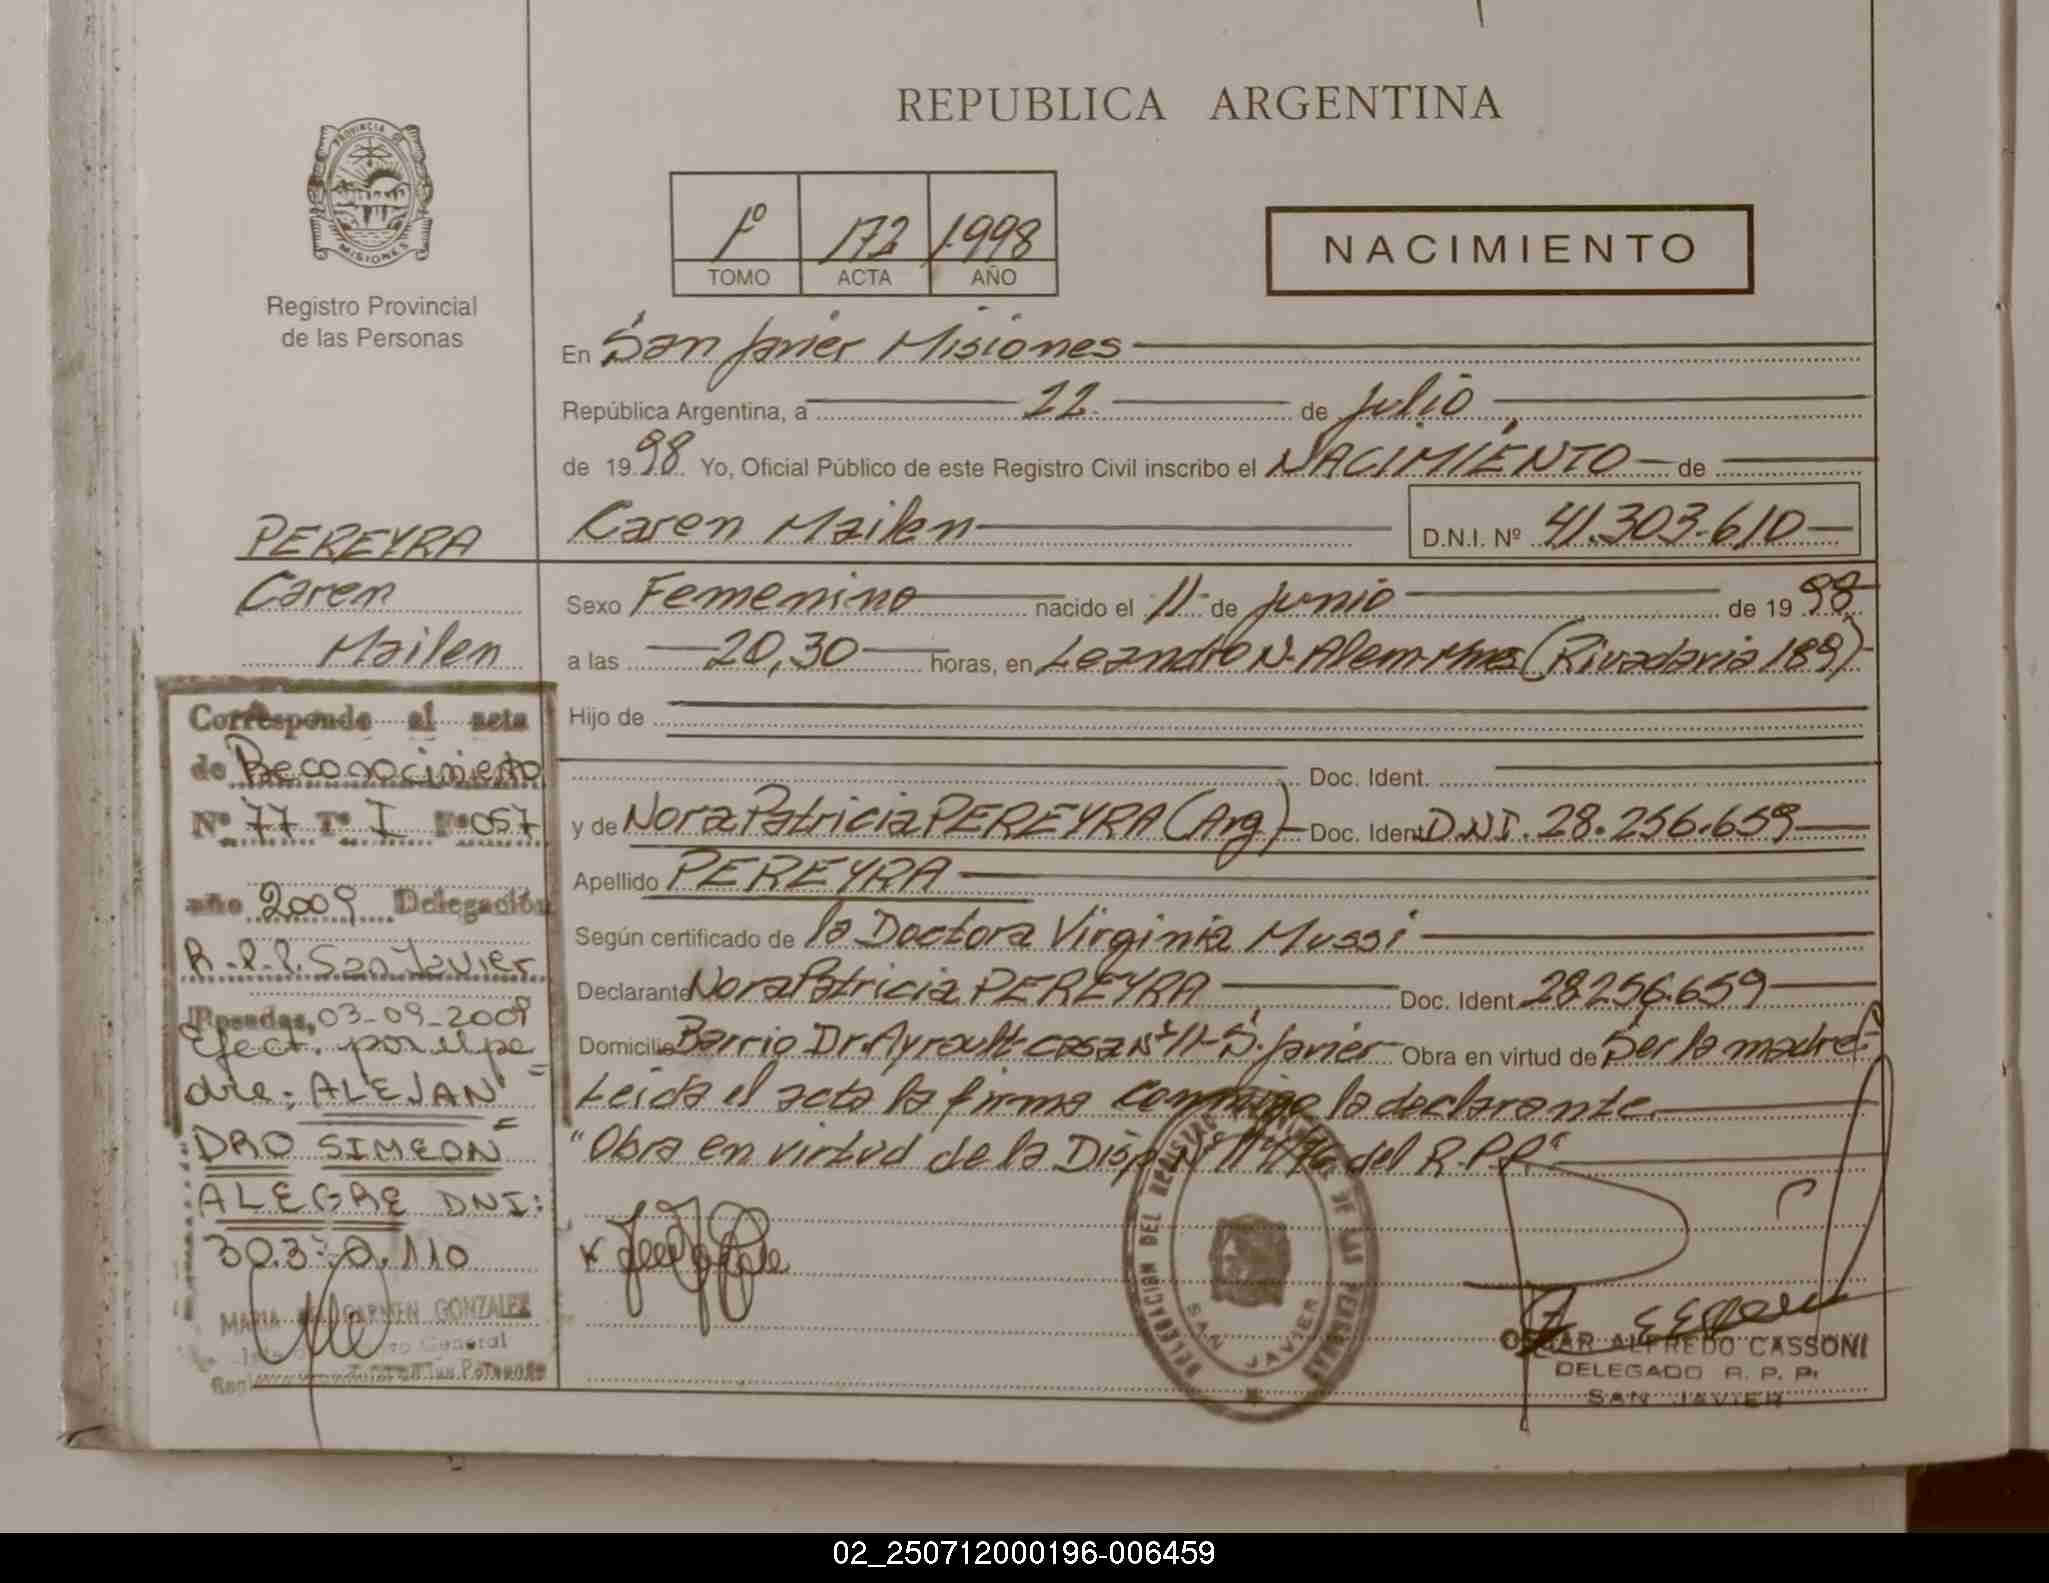 REPUBLICA ARGENTINA
PROVINCIA DE
MISIONES
Registro Provincial
de las Personas
1º 172 1998
TOMO ACTA AÑO
NACIMIENTO
En San Javier Misiones
República Argentina, a 22 de Julio
de 1998 Yo, Oficial Público de este Registro Civil inscribo el NACIMIENTO de
Caren Mailen D.N.I. Nº 41.303.610
Sexo Femenino nacido el 11 de junio de 1998
a las 20,30 horas, en Leandro N. Alem-Mnes (Rivadavia 189)
Hijo de
Doc. Ident.
y de Nora Patricia PEREYRA (Arg) Doc. Ident D.N.I. 28.256.659
Apellido PEREYRA
Según certificado de la Doctora Virginia Mussi
Declarante Nora Patricia PEREYRA Doc. Ident 28256.659
Domicilio Barrio Dr. Ayrault casa Nº 11-S. Javier Obra en virtud de Ser la madre
Leida el acta la firma conmigo la declarante
"Obra en virtud de la Disp. Nº del R.P.P."
PEREYRA
Caren
Mailen
Corresponde al acta
de Reconocimiento
Nº 77 Tº I Fº 057
año 2009 Delegación
R.P.P. San Javier
Posadas, 03-09-2009
Efect. por el pa=
dre: ALEJAN=
DRO SIMEON
ALEGRE DNI:
110
MARIA DEL CARMEN GONZALEZ
General
DELEGACION DEL REGISTRO DE LAS PERSONAS
SAN JAVIER
OSCAR ALFREDO CASSONI
DELEGADO R. P. P.
SAN JAVIER
02_250712000196-006459